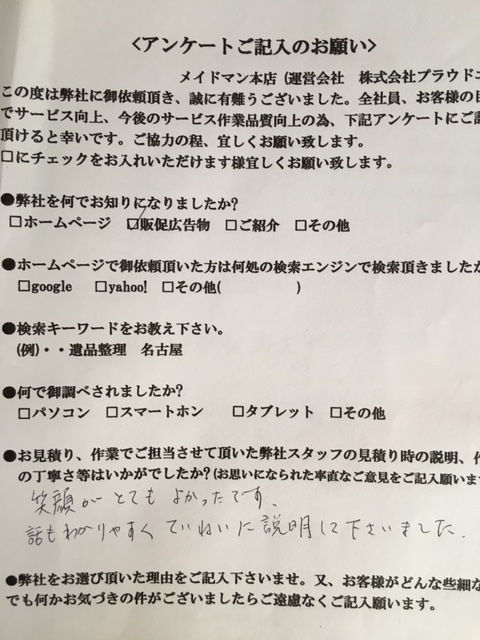 <アンケートご記入のお願い>
メイドマン本店 (運営会社 株式会社プラウドエ
この度は弊社に御依頼頂き、誠に有難うございました。全社員、お客様の目
でサービス向上、今後のサービス作業品質向上の為、下記アンケートにご記
頂けると幸いです。ご協力の程、宜しくお願い致します。
□にチェックをお入れいただけます様宜しくお願い致します。
●弊社を何でお知りになりましたか?
□ホームページ ☑販促広告物 □ご紹介 □その他
●ホームページで御依頼頂いた方は何処の検索エンジンで検索頂きましたか
□google □yahoo! □その他( )
●検索キーワードをお教え下さい。
(例)・・遺品整理 名古屋
●何で御調べされましたか?
□パソコン □スマートホン □タブレット □その他
●お見積り、作業でご担当させて頂いた弊社スタッフの見積り時の説明、作
の丁寧さ等はいかがでしたか?(お思いになられた率直なご意見をご記入願います
笑顔がとてもよかったです。
話もわかりやすくていねいに説明して下さいました。
●弊社をお選び頂いた理由をご記入下さいませ。又、お客様がどんな些細な
でも何かお気づきの件がございましたらご遠慮なくご記入願います。